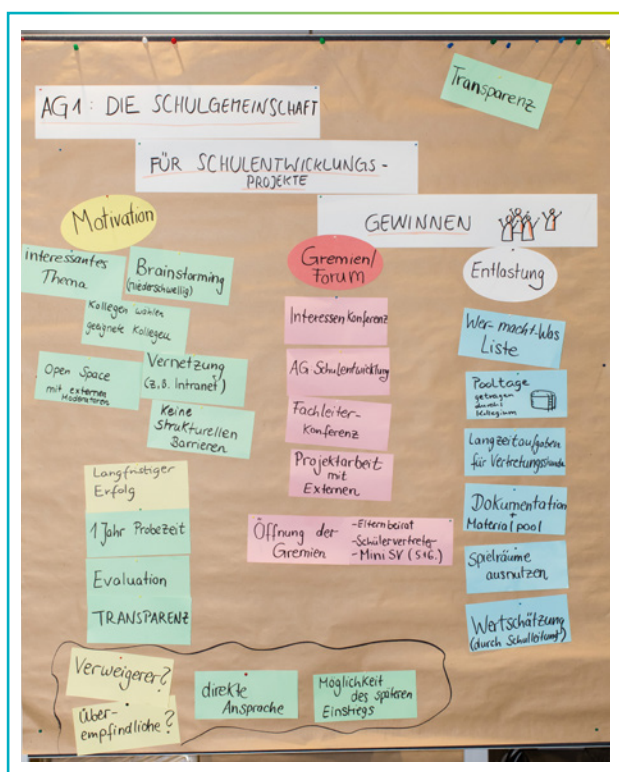 Transparenz
AG1: DIE SCHULGEMEINSCHAFT
FÜR SCHULENTWICKLUNGS-
PROJEKTE
GEWINNEN
Motivation
interessantes
Thema
Brainstorming
(niederschwellig)
Kollegen wählen
geeignete Kollegen
Open Space
mit externen
Moderatoren
Vernetzung
(z.B. Intranet)
Keine
strukturellen
Barrieren
Langfristiger
Erfolg
1 Jahr Probezeit
Evaluation
TRANSPARENZ
Gremien/
Forum
Interessen Konferenz
AG Schulentwicklung
Fachleiter-
Konferenz
Projektarbeit
mit
Externen
Öffnung der
Gremien
-Elternbeirat
-Schülervertreter
-Mini SV (5+6.)
Entlastung
Wer-macht-Was
Liste
Pooltage
getragen
durchs
Kollegium
Langzeitaufgaben
für Vertretungsstunde
Dokumentation
+
Materialpool
Spielräume
ausnutzen
Wertschätzung
(durch Schulleitung!)
Verweigerer?
über-
empfindliche?
direkte
Ansprache
Möglichkeit
des späteren
Einstiegs